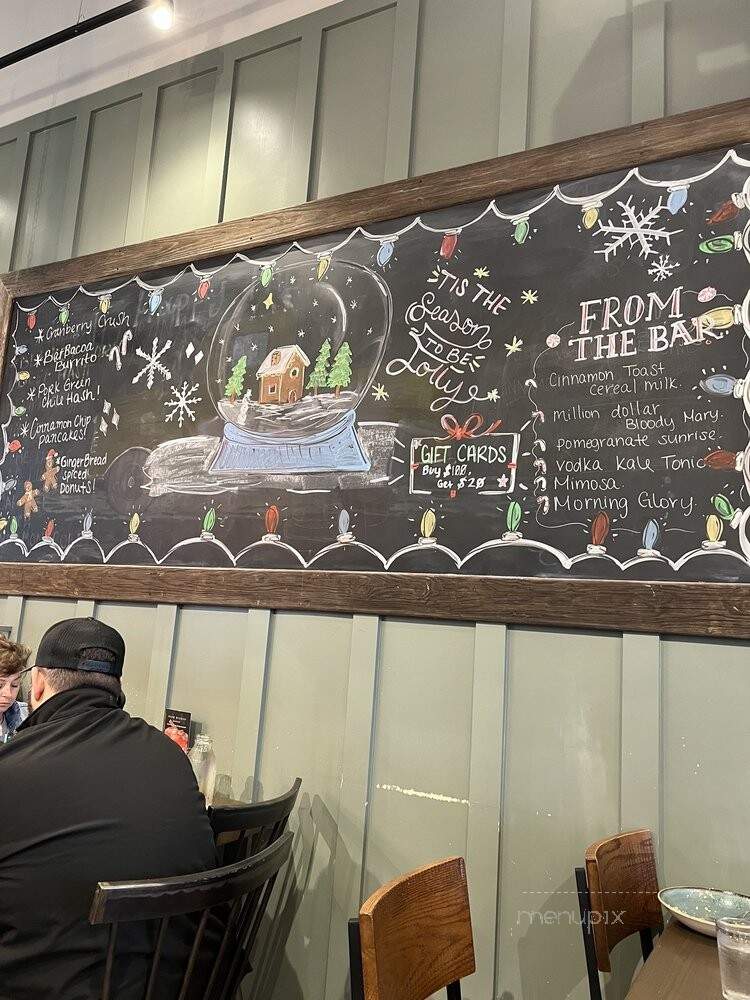 *Cranberry Crush
*Bierbacoa
Burrito
*Pork Green
Chili Hash!
*Cinnamon Chip
pancakes!
*GingerBread
spiced
Donuts!
'TIS THE
Season
TO BE
Jolly
GIFT CARDS
Buy $100,
Get $20
FROM
THE BAR
Cinnamon Toast
Cereal milk.
million dollar
Bloody Mary.
pomegranate sunrise.
vodka Kale Tonic
Mimosa.
Morning Glory.
menupix